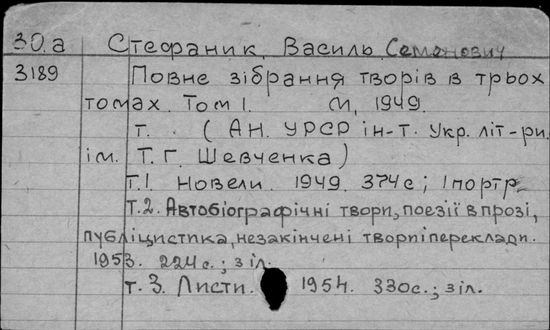 30.a Стефаник, Василь Семенович
3189 Повне зібрання творів в трьох
томах. Том I. М, 1949.
т. (АН. УРСР ін-т. Укр. літ-ри.
ім. Т. Г. Шевченка)
т.1. Новели. 1949. 374с; 1 портр.
т.2. Автобіографічні твори, поезії в прозі,
публіцистика, незакінчені твори і переклади.
1953. 224с.; з іл.
т. 3. Листи. 1954. 330с.; з іл.